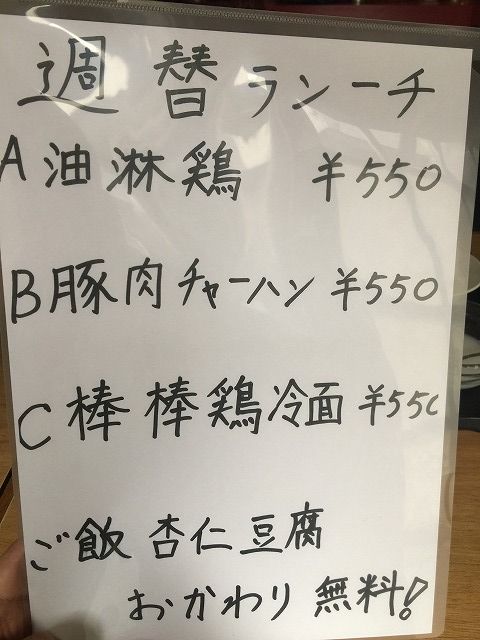 週替ランーチ
A 油淋鶏 ¥550
B 豚肉チャーハン ¥550
C 棒棒鶏冷面 ¥550
ご飯 杏仁豆腐
おかわり 無料!